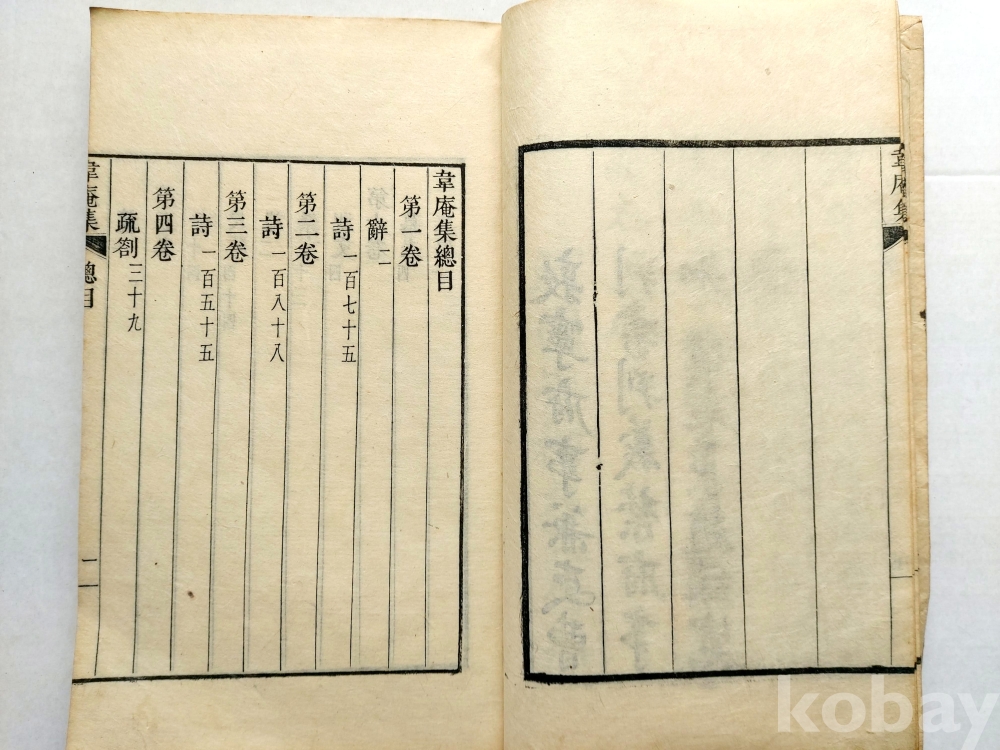 韋庵集
韋庵集總目
第一卷
辭二
詩一百七十五
第二卷
詩一百八十八
第三卷
詩一百五十五
第四卷
疏劄三十九
韋庵集
總目
一
kobay